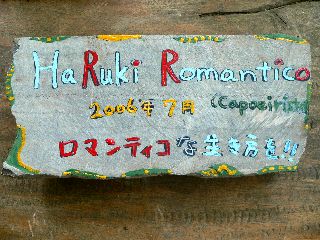 HaRuki Romantico
2006年7月 (Capoeirista
ロマンティコな生き方を!!